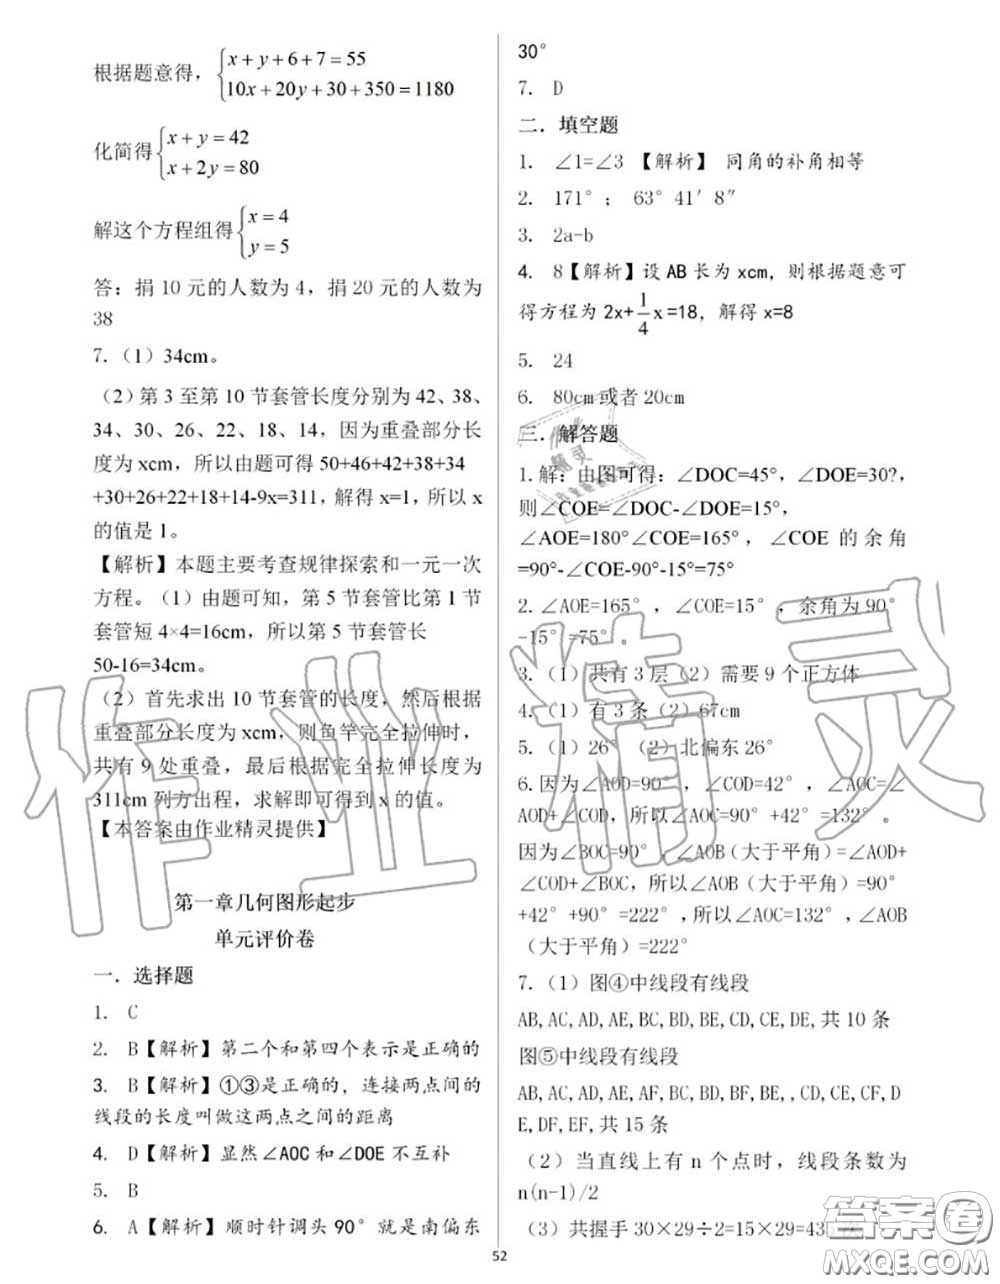 根据题意得，{x+y+6+7=55
10x+20y+30+350=1180
化简得{x+y=42
x+2y=80
解这个方程组得{x=4
y=5
答：捐 10 元的人数为 4，捐 20 元的人数为
38
7.（1）34cm。
（2）第 3 至第 10 节套管长度分别为 42、38、
34、30、26、22、18、14，因为重叠部分长
度为 xcm，所以由题可得 50+46+42+38+34
+30+26+22+18+14-9x=311，解得 x=1，所以 x
的值是 1。
【解析】本题主要考查规律探索和一元一次
方程。（1）由题可知，第 5 节套管比第 1 节
套管短 4×4=16cm，所以第 5 节套管长
50-16=34cm。
（2）首先求出 10 节套管的长度，然后根据
重叠部分长度为 xcm，则鱼竿完全拉伸时，
共有 9 处重叠，最后根据完全拉伸长度为
311cm 列方出程，求解即可得到 x 的值。
【本答案由作业精灵提供】
第一章几何图形起步
单元评价卷
一．选择题
1. C
2. B【解析】第二个和第四个表示是正确的
3. B【解析】①③是正确的，连接两点间的
线段的长度叫做这两点之间的距离
4. D【解析】显然∠AOC 和∠DOE 不互补
5. B
6. A【解析】顺时针调头 90°就是南偏东
30°
7. D
二．填空题
1. ∠1=∠3 【解析】 同角的补角相等
2. 171°； 63°41′8″
3. 2a-b
4. 8【解析】设 AB 长为 xcm，则根据题意可
得方程为 2x+1/4x=18，解得 x=8
5. 24
6. 80cm 或者 20cm
三．解答题
1.解：由图可得：∠DOC=45°，∠DOE=30?，
则∠COE=∠DOC-∠DOE=15°，
∠AOE=180°∠COE=165°，∠COE 的余角
=90°-∠COE-90°-15°=75°
2.∠AOE=165°，∠COE=15°，余角为 90°
-15°=75°。
3.（1）共有 3 层（2）需要 9 个正方体
4.（1）有 3 条（2）67cm
5.（1）26° （2）北偏东 26°
6.因为∠AOD=90°，∠COD=42°，∠AOC=∠
AOD+∠COD，所以∠AOC=90°+42°=132°。
因为∠BOC=90°，∠AOB（大于平角）=∠AOD+
∠COD+∠BOC，所以∠AOB（大于平角）=90°
+42°+90°=222°，所以∠AOC=132°，∠AOB
（大于平角）=222°
7.（1）图④中线段有线段
AB,AC,AD,AE,BC,BD,BE,CD,CE,DE,共 10 条
图⑤中线段有线段
AB,AC,AD,AE,AF,BC,BD,BE,BF,CD,CE,CF,D
E,DF,EF,共 15 条
（2）当直线上有 n 个点时，线段条数为
n(n-1)/2
（3）共握手 30×29÷2=15×29=435
52
作业精灵
答案圈
MXQE.COM